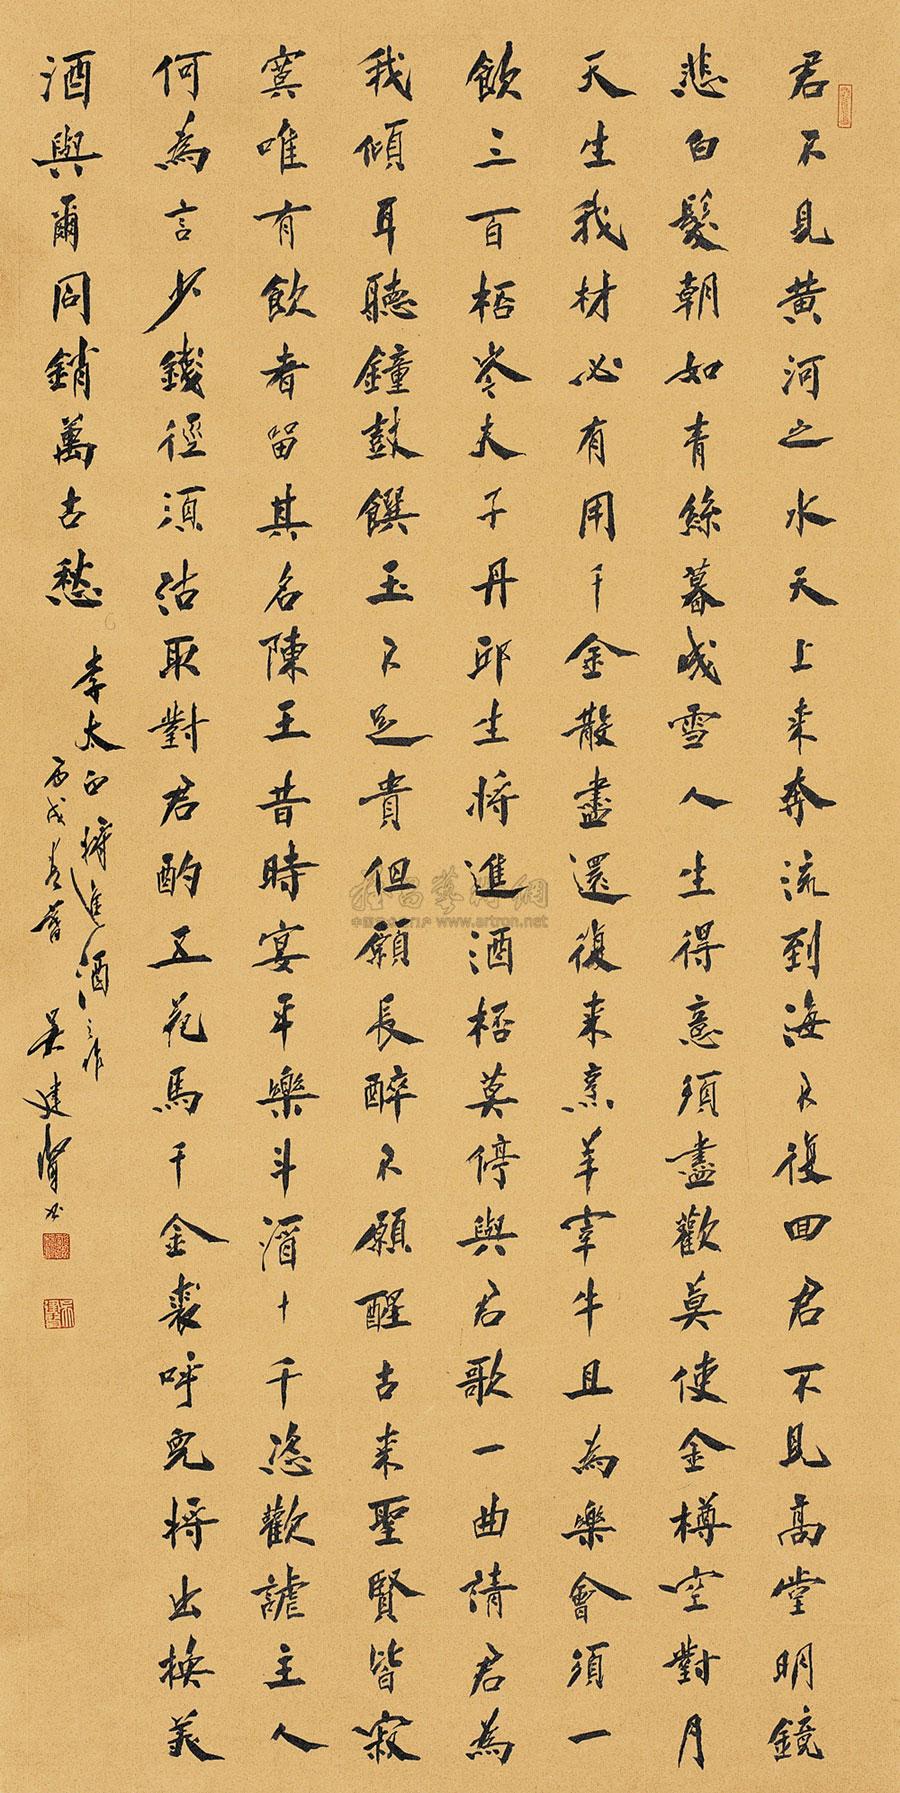 君不見黄河之水天上来奔流到海不復回君不見高堂明鏡
悲白髮朝如青絲暮成雪人生得意須盡歡莫使金樽空對月
天生我材必有用千金散盡還復来烹羊宰牛且為樂會須一
飲三百桮岑夫子丹邱生将進酒桮莫停與君歌一曲請君為
我傾耳聽鐘鼓饌玉不足貴但願長醉不願醒古来聖賢皆寂
寞唯有飲者留其名陳王昔時宴平樂斗酒十千恣歡謔主人
何為言少錢徑須沽取對君酌五花馬千金裘呼兒将出換美
酒與爾同銷萬古愁
李太白将進酒之作
丙戌春 吴建賢书
雅昌藝術網
www.artron.net